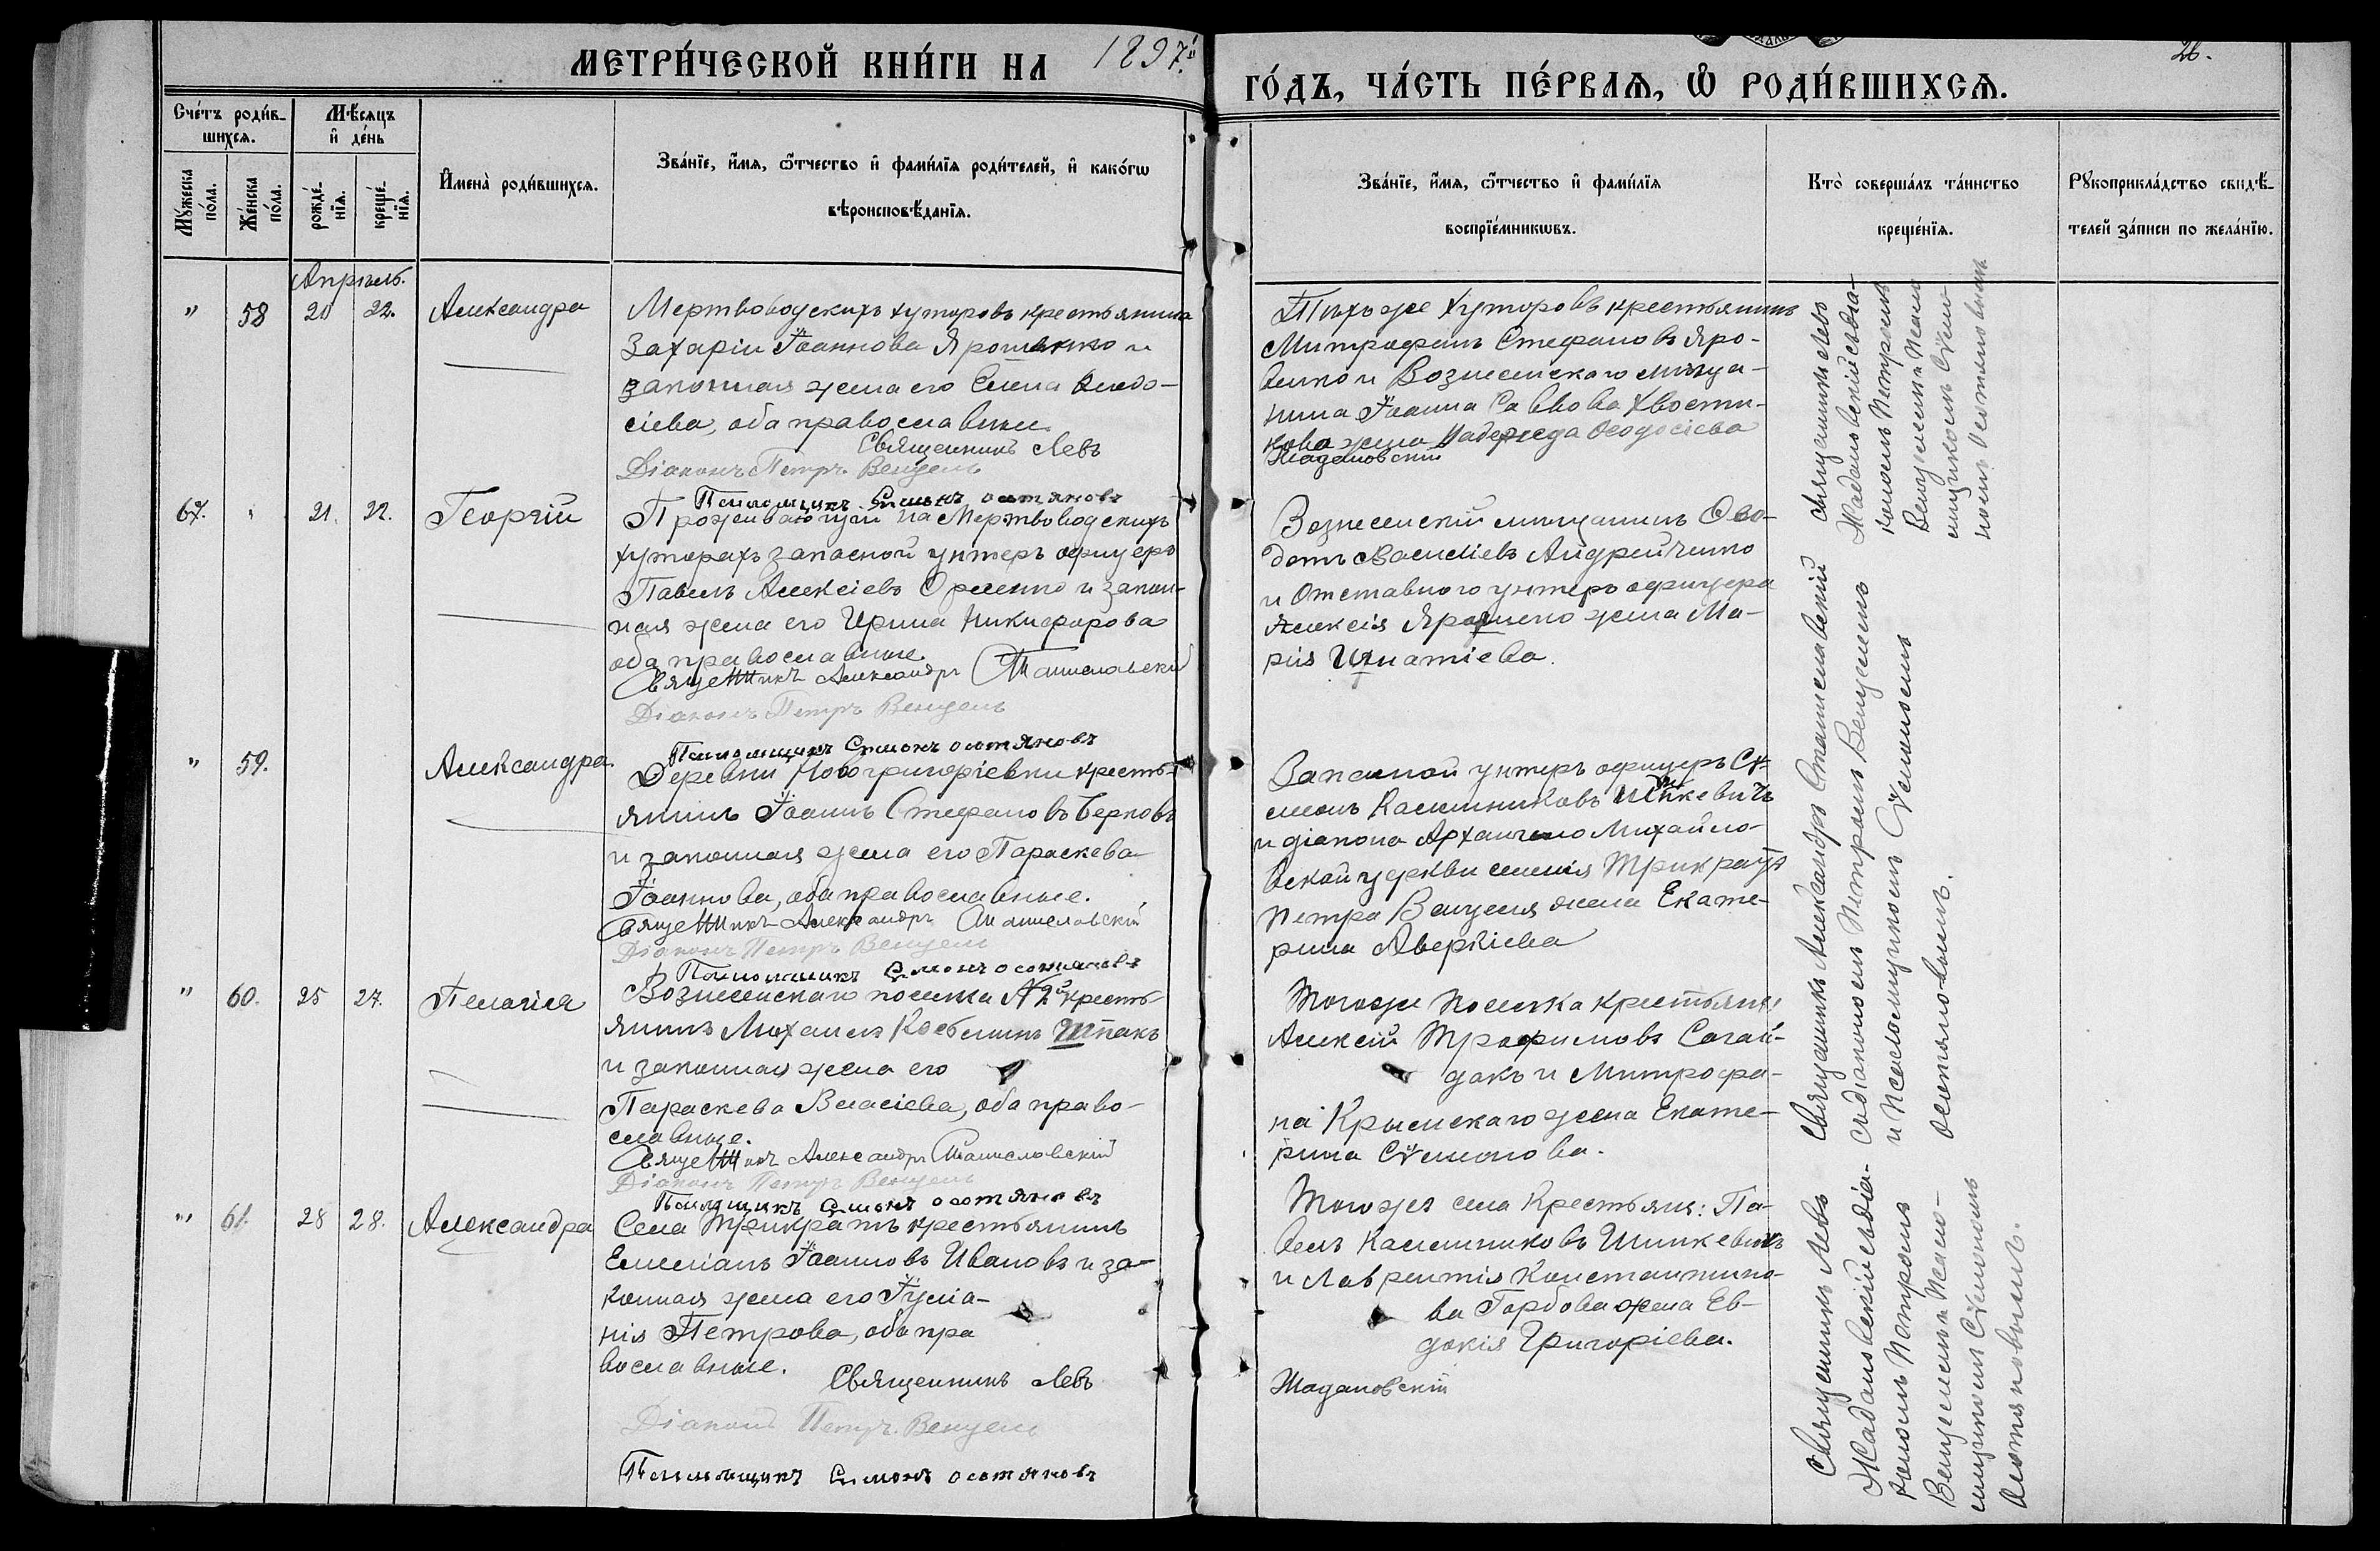 МЕТРИ́ЧЕСКОЙ КНИ́ГИ НА 1897й
ГО́ДЪ, ЧА́СТЬ ПЕ́РВАѦ, Ѡ РОДИ́ВШИХСѦ.
26.
Сче́тъ роди́в-
шихсѧ.
Мѣ́сѧцъ
и де́нь
Мꙋ́жеска
по́ла.
Же́нска
по́ла.
рожде́-
нїѧ.
креще́-
нїѧ.
Имена̀ роди́вшихсѧ.
Зва́нїе, и́мѧ, ѻ́тчество и фами́лїѧ роди́телей, и како́гѡ
вѣроисповѣ́данїѧ.
Зва́нїе, и́мѧ, ѻ́тчество и фами́лїѧ
воспрїе́мникѡвъ.
Кто̀ соверша́лъ та́инство
креще́нїѧ.
Рꙋкоприкла́дство свидѣ́-
телей за́писи по жела́нїю.
Апрѣль.
" 58 20 22. Александра
Мертвоводскихъ хуторовъ крестьянинъ
Захарій Іоанновъ Ярошенко и
законная жена его Елена Ѳеодо-
сіева, оба православные.
Священникъ Левъ
Діаконъ Петръ Венцель
Псаломщикъ Симонъ Осотяновъ
Тѣхъ же хуторовъ крестьянинъ
Митрофанъ Стефановъ Яро-
шенко и Вознесенскаго мѣща-
нина Іоанна Саввова Хвости-
кова жена Надежда Ѳеодосіева
Жадановскій
Священникъ Левъ
Жадановскій съ діа-
кономъ Петромъ
Венцелемъ и Псало-
мщикомъ Сѵмо-
номъ Осотяновымъ
67. " 21. 22. Георгій
Проживающій на Мертвоводскихъ
хуторахъ запасной унтеръ офицеръ
Павелъ Алексіевъ Орленко и закон-
ная жена его Ирина Никифорова
оба православные.
Священникъ Александръ Станиславскій
Діаконъ Петръ Венцель
Псаломщикъ Симонъ Осотяновъ
Вознесенскій мѣщанинъ Ѳео-
дотъ Василіевъ Андрейченко
и Отставного унтеръ офицера
Алексія Ярошенко жена Ма-
рія Игнатіева.
" 59. Александра.
Деревни Новогригоріевки кресть-
янинъ Іоаннъ Стефановъ Берковъ
и законная жена его Параскева
Іоаннова, оба православные.
Священникъ Александръ Станиславскій
Діаконъ Петръ Венцель
Псаломщикъ Симонъ Осотяновъ
Запасной унтеръ офицеръ Сѵ-
меонъ Калинниковъ Шинкевичъ
и діакона Архангело Михайлов-
ской церкви селенія Трикратъ
Петра Венцеля жена Екате-
рина Аверкіева
Священникъ Александръ Станиславскій
съ діакономъ Петромъ Венцелемъ
и Псаломщикомъ Сѵмономъ
Осотяновымъ.
" 60. 25 27. Пелагія
Вознесенскаго поселка № 2й кресть-
янинъ Михаилъ Шпакъ
и законная жена его
Параскева Власіева, оба право-
славные.
Священникъ Александръ Станиславскій
Діаконъ Петръ Венцель
Псаломщикъ Симонъ Осотяновъ
Того же поселка крестьянинъ
Алексій Трофимовъ Сагай-
дакъ и Митрофа-
на Крымскаго жена Екате-
рина Сѵмонова.
" 61. 28 28. Александра
Села Трикратъ крестьянинъ
Емеліанъ Іоанновъ Ивановъ и за-
конная жена его Іуліа-
нія Петрова, оба пра
вославные.
Священникъ Левъ
Діаконъ Петръ Венцель
Псаломщикъ Симонъ Осотяновъ
Того же села крестьян: Па-
велъ Калинниковъ Шинкевичъ
и Лаврентія Константино-
ва Горбова жена Ев-
докія Григоріева.
Жадановскій
Священникъ Левъ
Жадановскій съ діа-
кономъ Петромъ
Венцелемъ и Псало-
мщикомъ Сѵмономъ
Осотяновымъ.